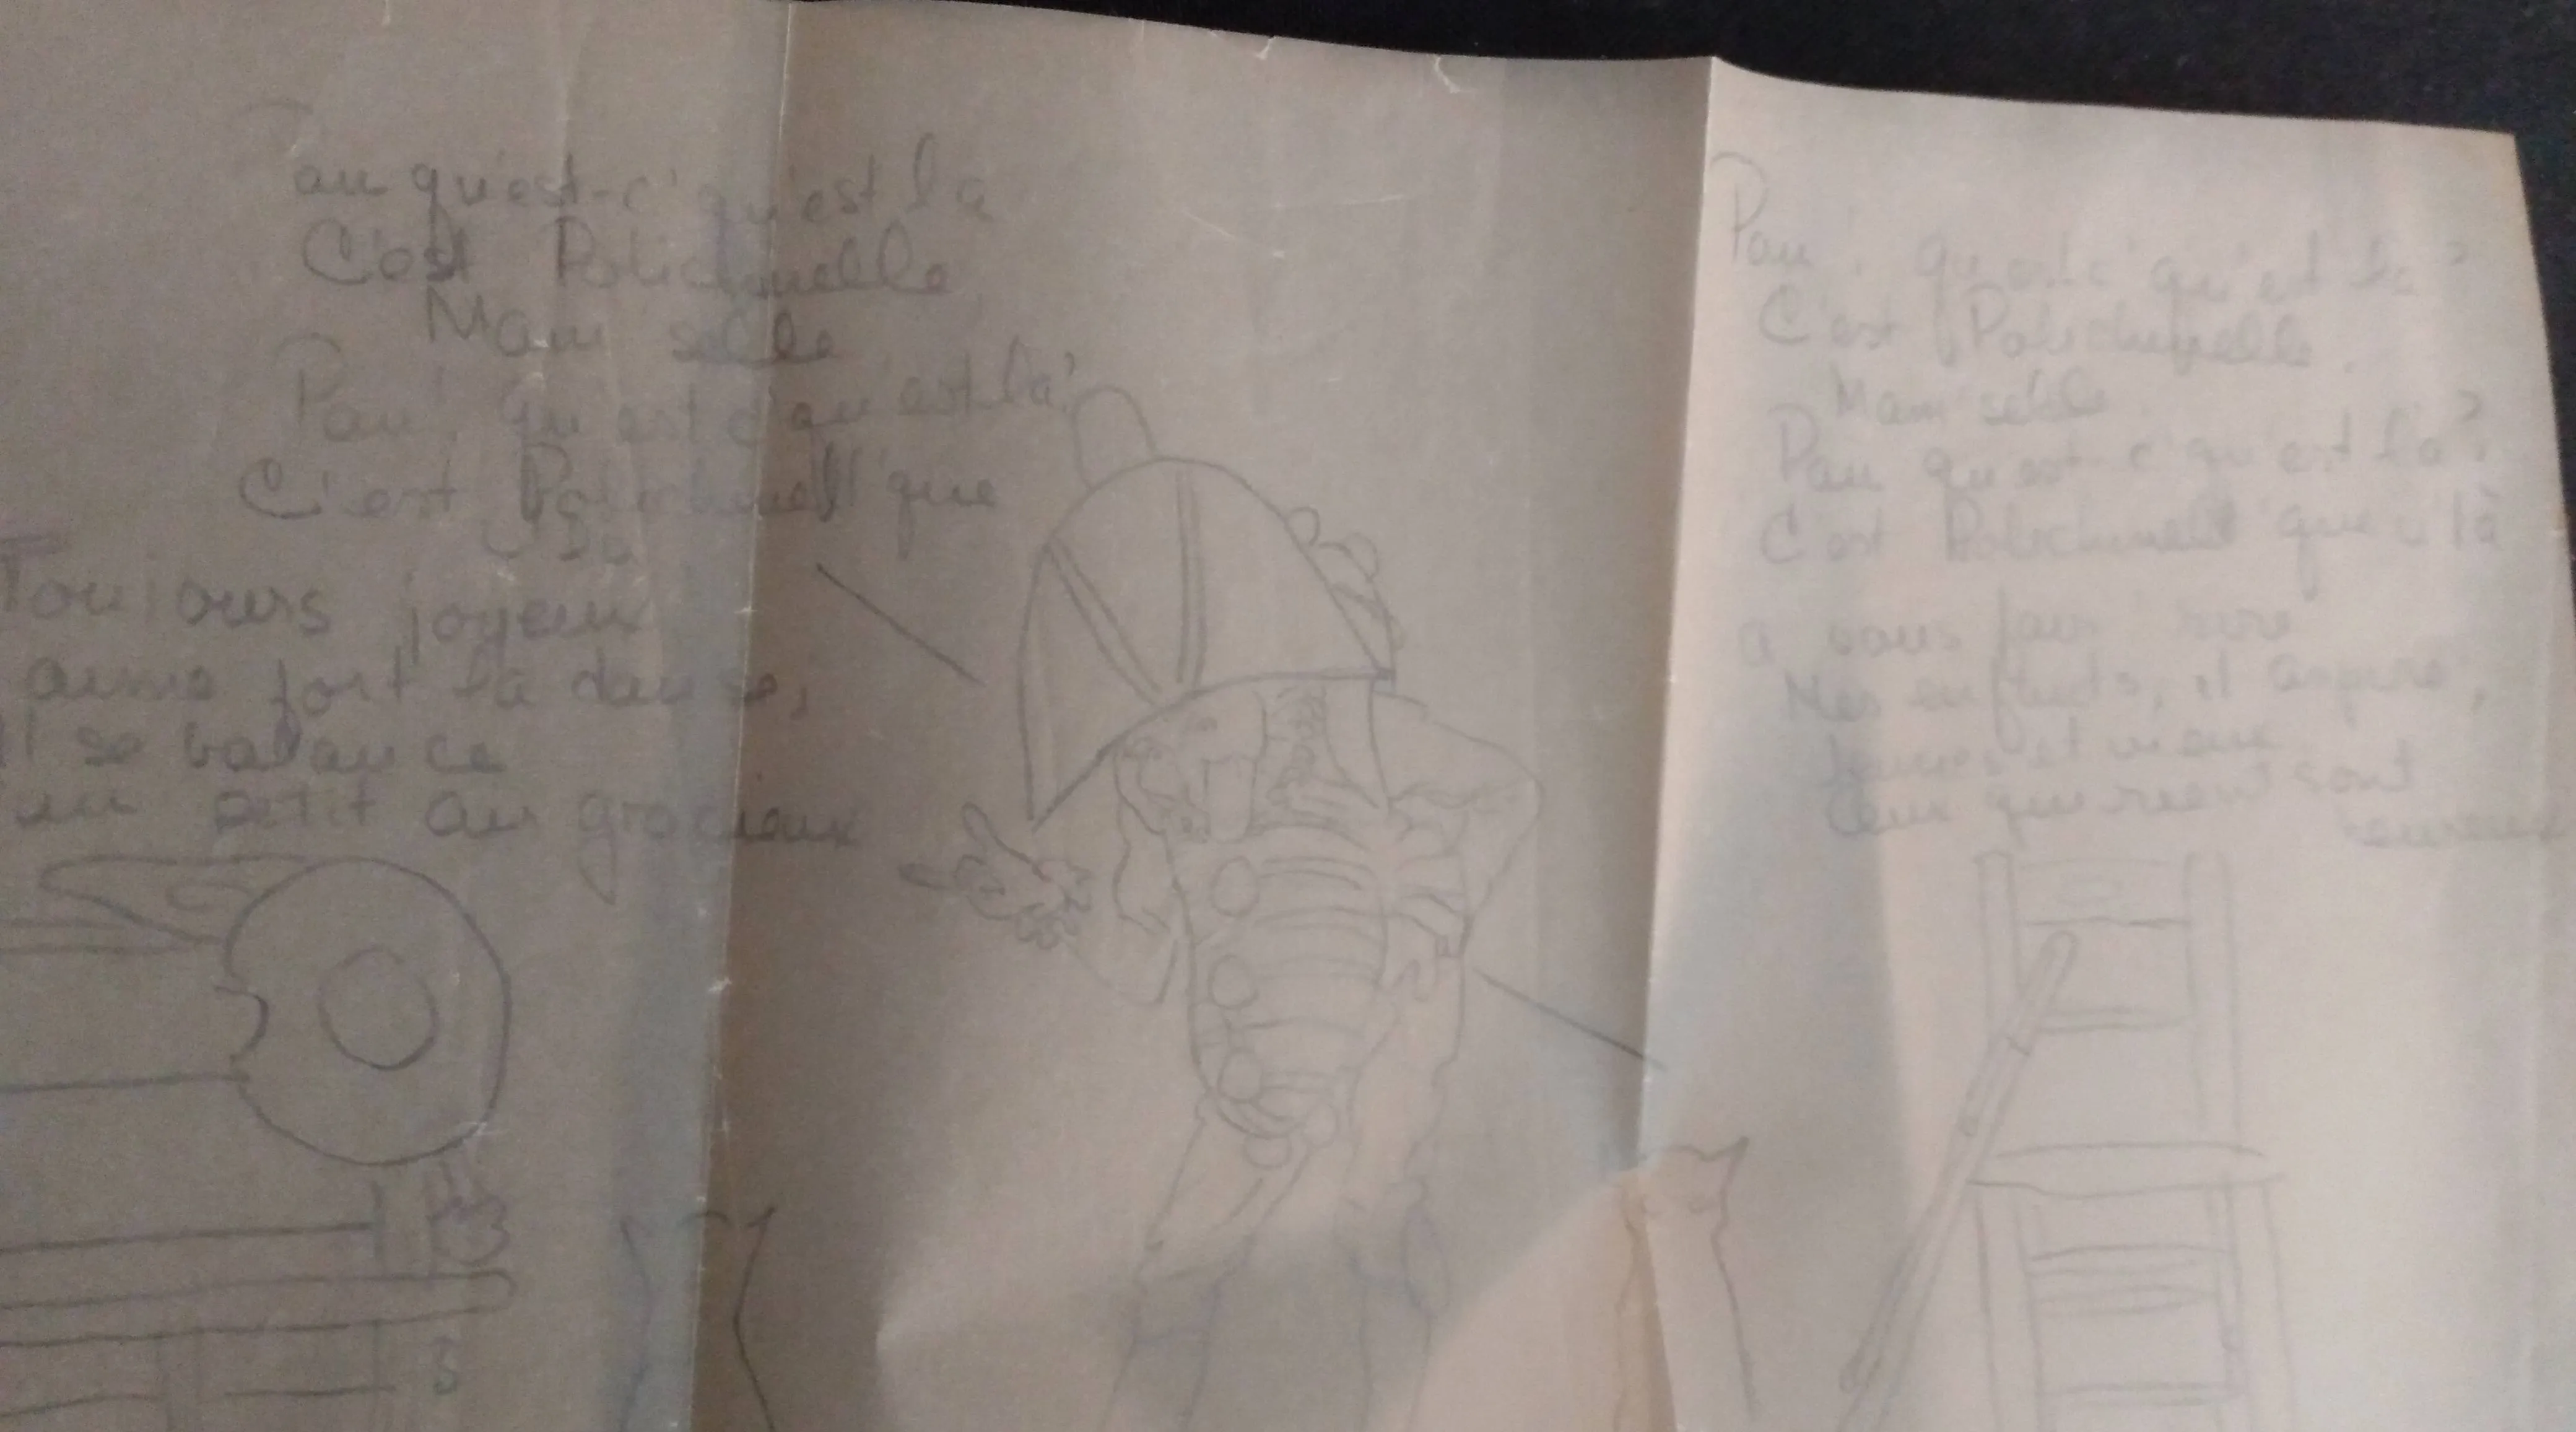 Pan qu'est-c' qu'est la
C'est Polichinelle
Mam'selle
Pan! qu'est c'qu'est là?
C'est Polichinell' que
v'là
Toujours joyeux
aime fort la danse,
Il se balance
petit air gracieux
Pan! qu'est-c' qu'est là?
C'est Polichinelle.
Mam'selle
Pan qu'est-c' qu'est là?
C'est Polichinell' que v'là
a vous fair rire
Mes enfants, il aspire,
Jeunes et vieux
Ceux qui rient sont
heureux